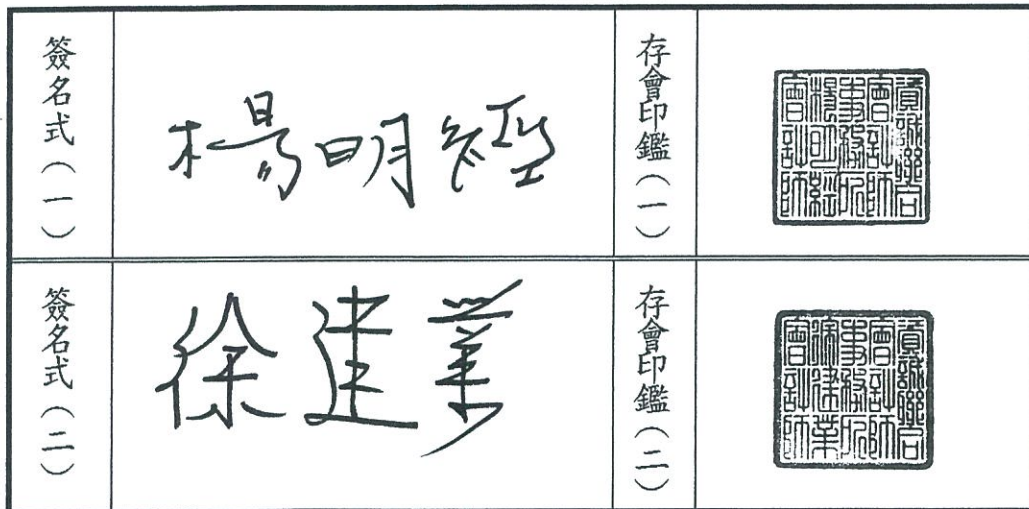 簽名式（一）
楊明經
存會印鑑（一）
資誠聯合
會計師
事務所
楊明經
會計師
簽名式（二）
徐建業
存會印鑑（二）
資誠聯合
會計師
事務所
徐建業
會計師